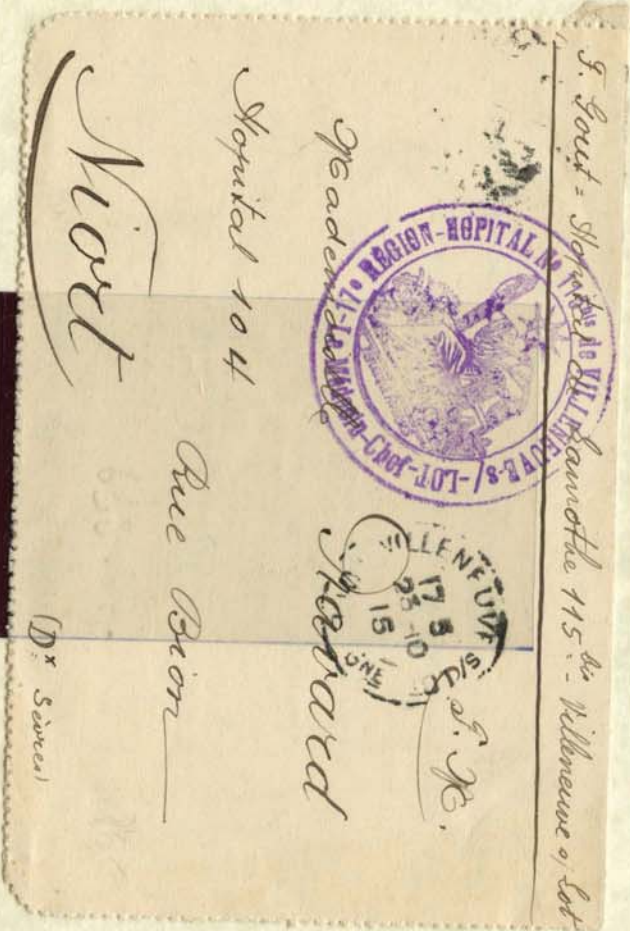 F. Gout = Hopital de Lamothe 115 bis - Villeneuve s/ Lot
F. M.
Mademoiselle Favard
Hopital 104 Rue Bion
Niort
(Dx Sèvres)
17e REGION - HOPITAL No bis de VILLENEUVE-S/-LOT
Médecin-Chef
VILLENEUVE S/
17 5
23-10
15